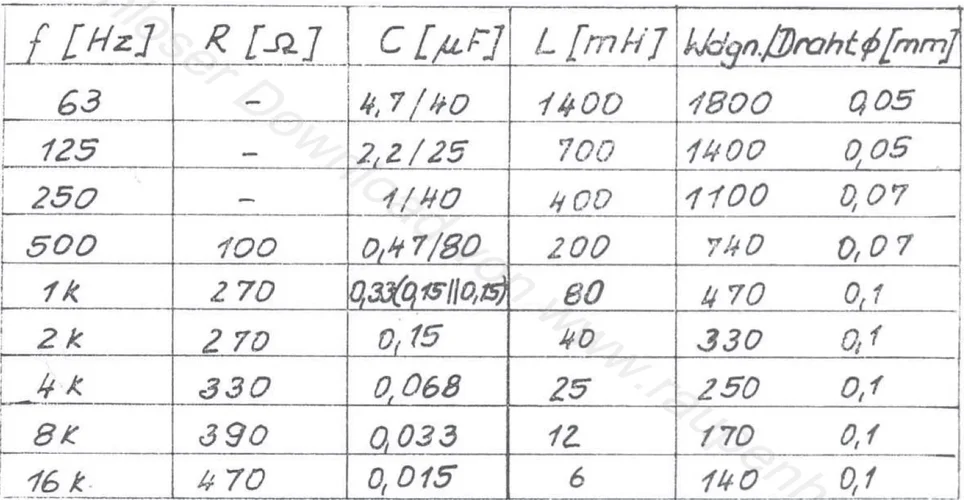 f [Hz] R [Ω] C [µF] L [mH] Wdgn./Draht ϕ [mm]
63 - 4,7/40 1400 1800 0,05
125 - 2,2/25 700 1400 0,05
250 - 1/40 400 1100 0,07
500 100 0,47/80 200 740 0,07
1k 270 0,33(0,15||0,15) 80 470 0,1
2k 270 0,15 40 330 0,1
4k 330 0,068 25 250 0,1
8k 390 0,033 12 170 0,1
16k 470 0,015 6 140 0,1
Download von www.raupenh